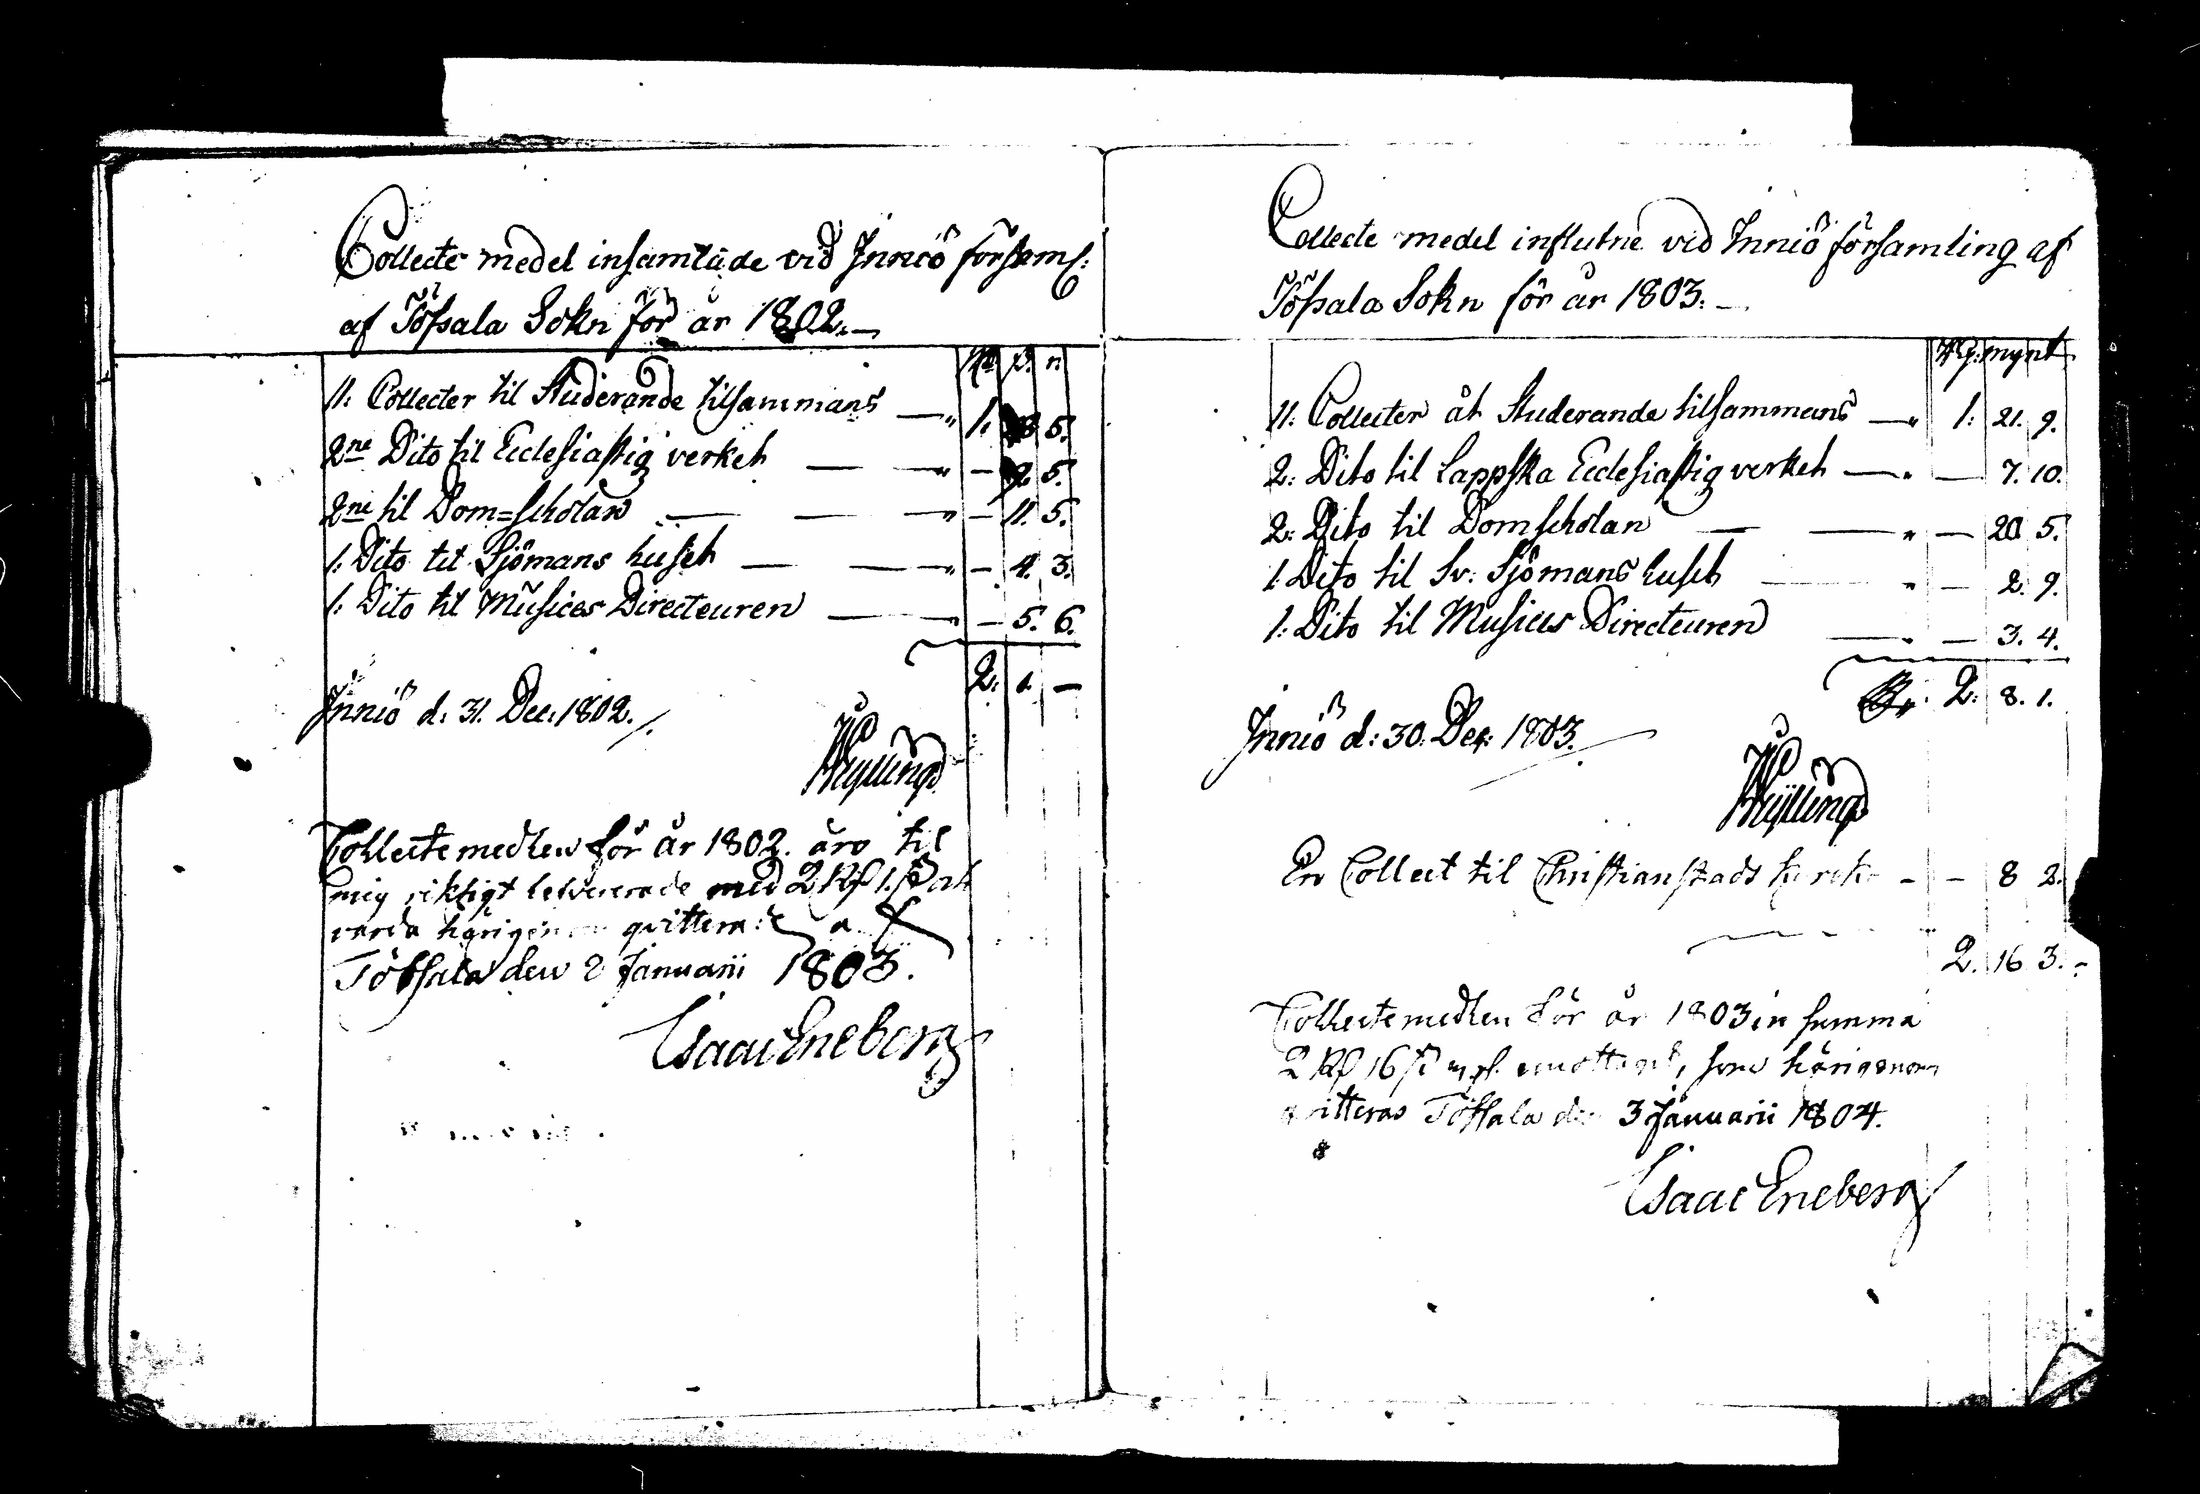 Collecte medel insamlade vid Inniö församl:
af Töfsala Sokn för år 1802.—
Rd. ß. r.
11: Collecter til Studerande tilsammans — " 1. 5.
2ne Dito til Ecclesiastiq verket — — " — 9. 5.
2ne til Dom=scholan — — — " — 11. 5.
1: Dito til Sjömans huset — — " — 4. 3.
1: Dito til Musices Directeuren — — " — 5. 6.
2: 1. —
Inniö d: 31. Dec: 1802. /.
Collectemedlen för år 1802. äro til
mig riktigt levererade med 2 Rd 1. ß
varda härigenom qvitterade
Töfsala den 2 Januarii 1803.
Isaac Eneberg
Collecte medel influtne vid Inniö församling af
Töfsala Sokn för år 1803. —
Rg: mynt
11: Collecter åt Studerande tilsammans — " 1: 21. 9.
2: Dito til Lappska Ecclesiastiq verket — " — 7. 10.
2: Dito til Domscholan — — " — 20 5.
1: Dito til Sv. Sjömans huset — " — 2. 9.
1: Dito til Musices Directeuren — " — 3. 4.
2: 8. 1.
Inniö d: 30. Dec: 1803.
En Collect til Christianstads kyrka - - 8 2.
2. 16 3. -
Collectemedlen för år 1803 in summa
2 Rd 16 ß emottagit, som härigenom
qvitteras Töfsala den 3 Januarii 1804.
Isaac Eneberg